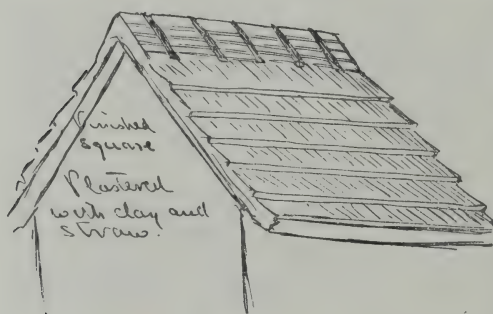 Finished
square
Plastered
with clay and
straw.